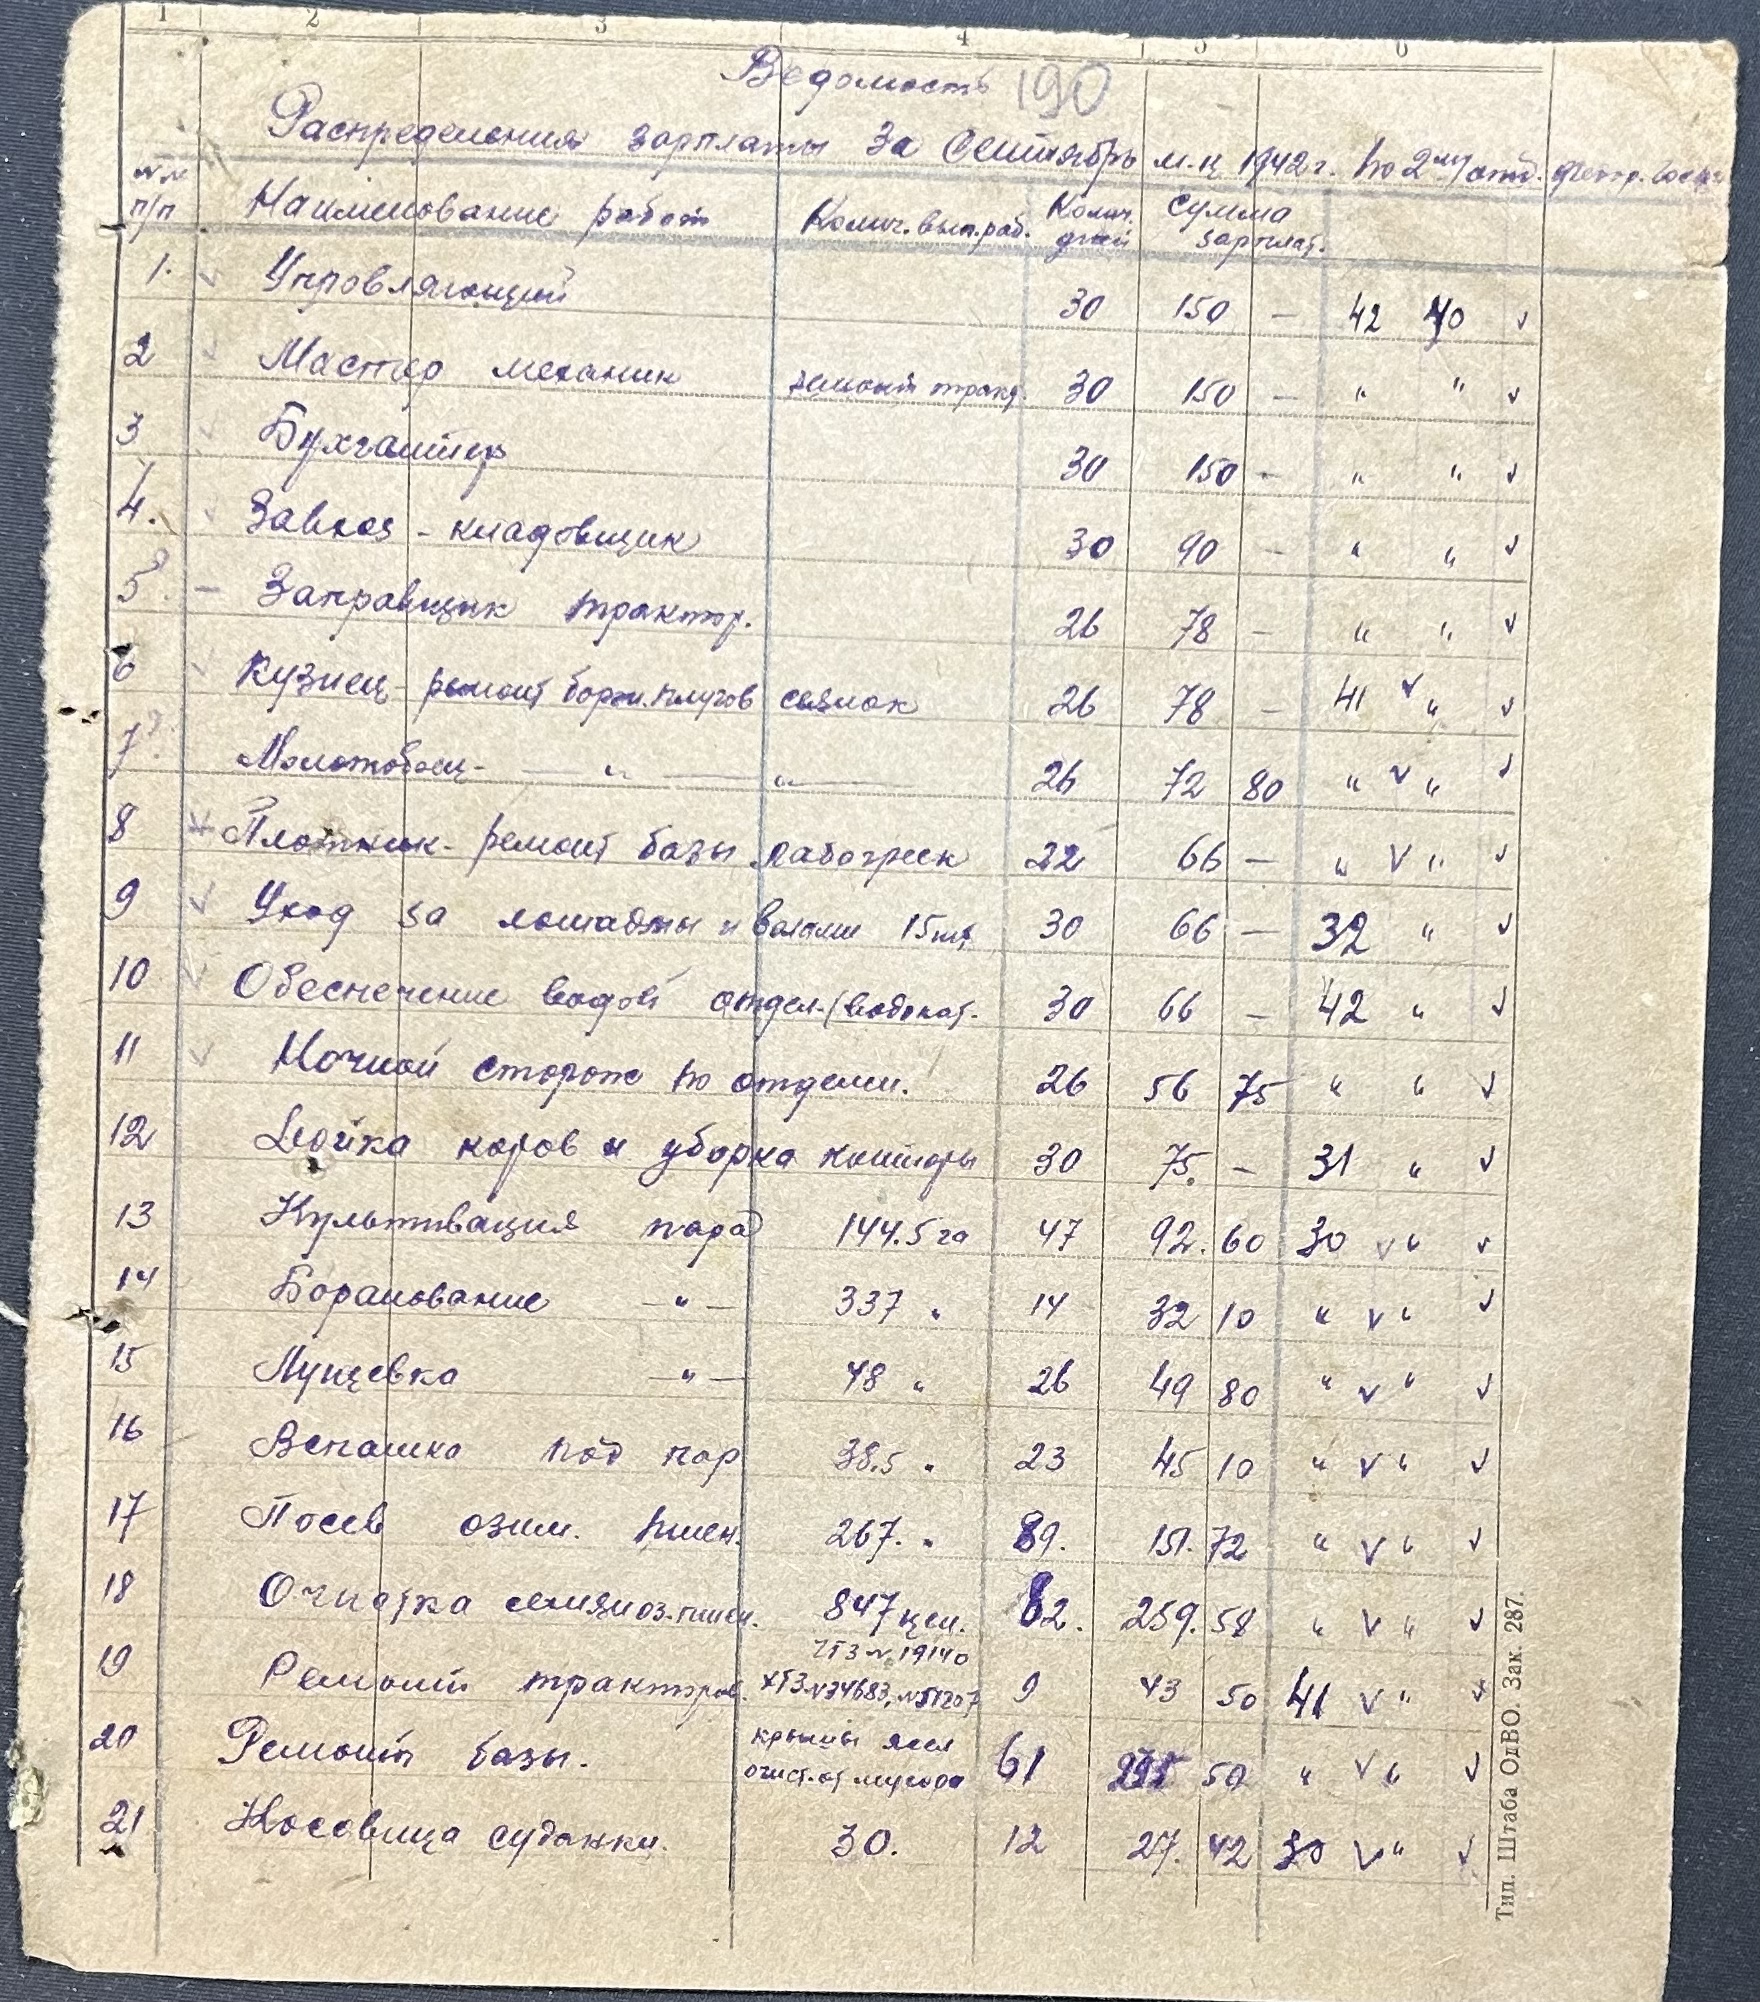 1 2 3 4 5 6
Ведомость 190
Распределения зарплаты за Сентябрь м-ц 1942 г. по 2му отд.
№№ п/п Наименование работ Колич. вып. раб. Колич. дней Сумма зарплат.
1. Управляющий 30 150 — 42 40 v
2 Мастер механик ремонт тракт. 30 150 — " " v
3 Бухгалтер 30 150 — " " v
4. Завхоз - кладовщик 30 90 — " " v
5. — Заправщик трактор. 26 78 — " " v
6 Кузнец - ремонт борон. плугов сеялок 26 78 — 41 v " v
7. Молотобоец - — " — " — 26 72 80 " v " v
8 Плотник - ремонт базы 22 66 — " v " v
9 v Уход за лошадьми и волами 15 шт. 30 66 — 32 " v
10 Обеспечение водой отдел. (водокат. 30 66 — 42 " v
11 v Ночной сторож по отделен. 26 56 75 " " v
12 Дойка коров и уборка конторы 30 75. — 31 " v
13 Культивация пара 144.5 га 47 92. 60 30 v " v
14 Боронование — " — 337 " 14 32 10 " v " v
15 Лущевка — " — 48 " 26 49 80 " v " v
16 Вспашка под пар 38.5 " 23 45 10 " v " v
17 Посев озим. пшен. 267. " 89. 151. 72 " v " v
18 Очистка семян оз. пшен. 847 цен. 82. 259. 58 " v " v
ЧТЗ № 19140
19 Ремонт тракторов. ХТЗ №34683, №51207 9 43 50 41 v " v
20 Ремонт базы. крыши ясел 61 295 50 " v " v
очист. от мусора
21 Косовица суданки. 30. 12 27. 42 30 v " v
Тип. Штаба ОдВО. Зак. 287.